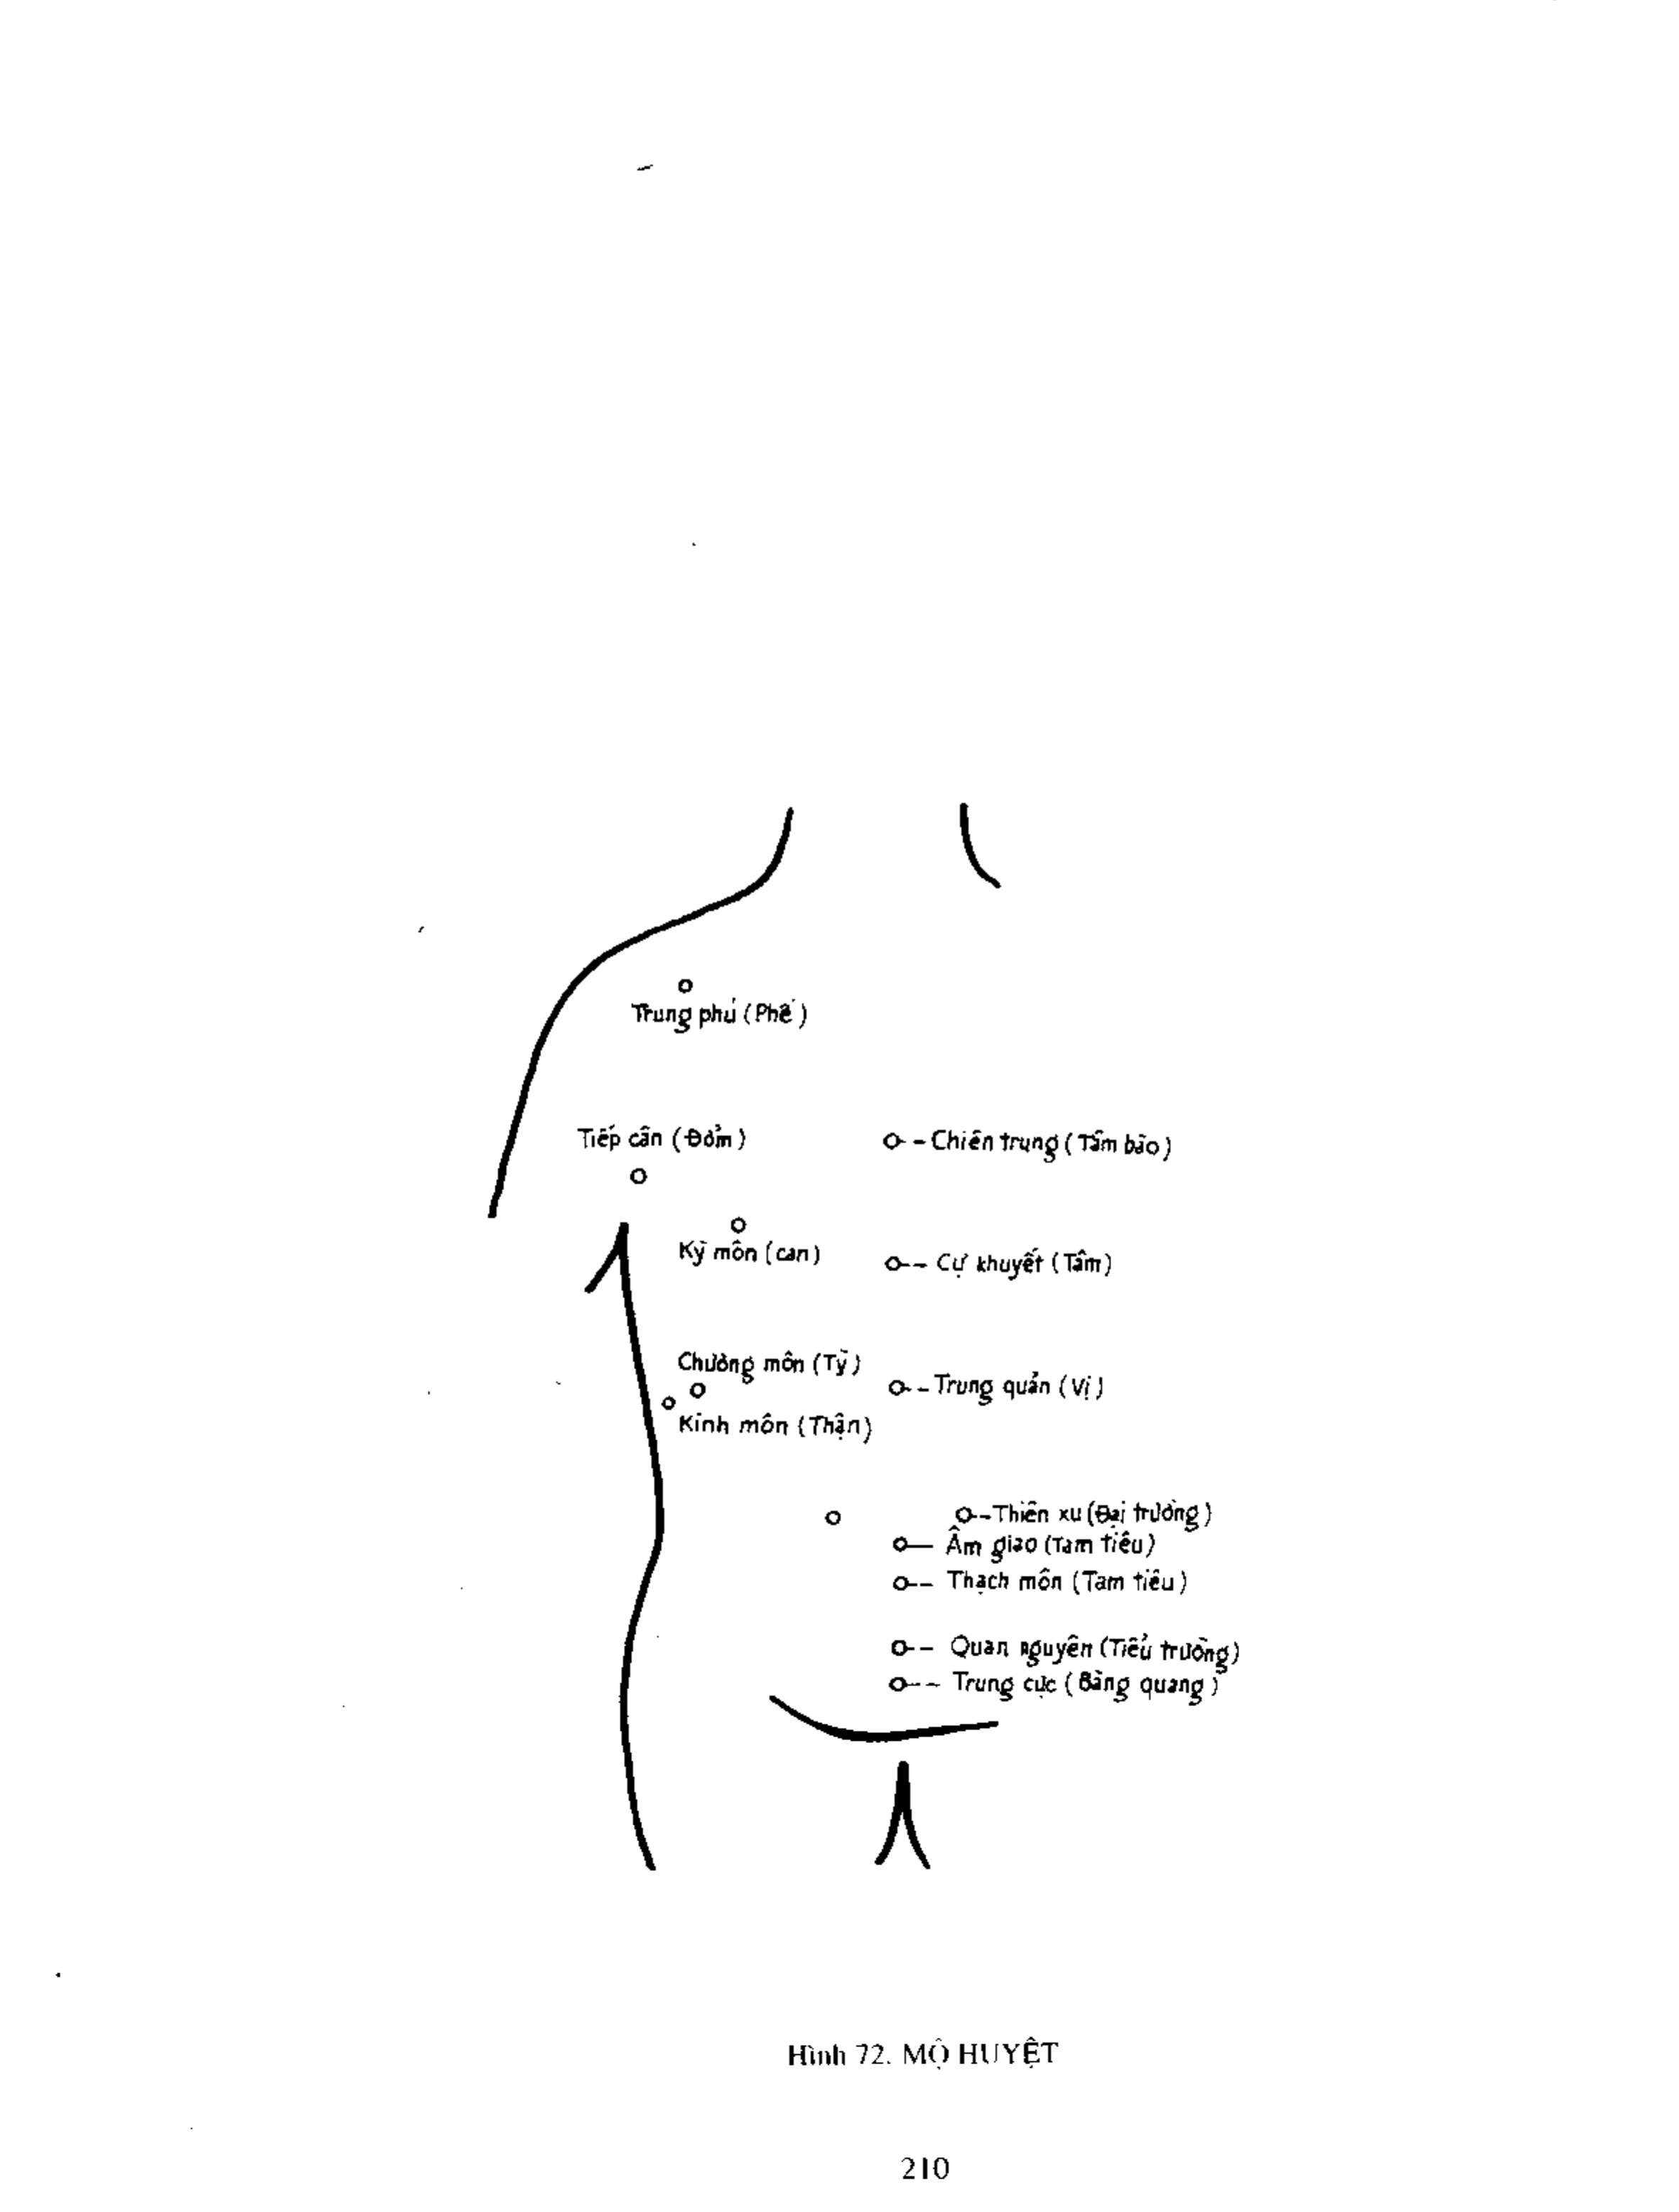 Trung phủ (Phế)
Tiếp cân (Đởm)
Chiên trung (Tâm bào)
Kỳ môn (can)
Cự khuyết (Tâm)
Chương môn (Tỳ)
Trung quản (Vị)
Kinh môn (Thận)
Thiên xu (Đại trường)
Âm giao (Tam tiêu)
Thạch môn (Tam tiêu)
Quan nguyên (Tiểu trường)
Trung cực (Bàng quang)
Hình 72. MỘ HUYỆT
210